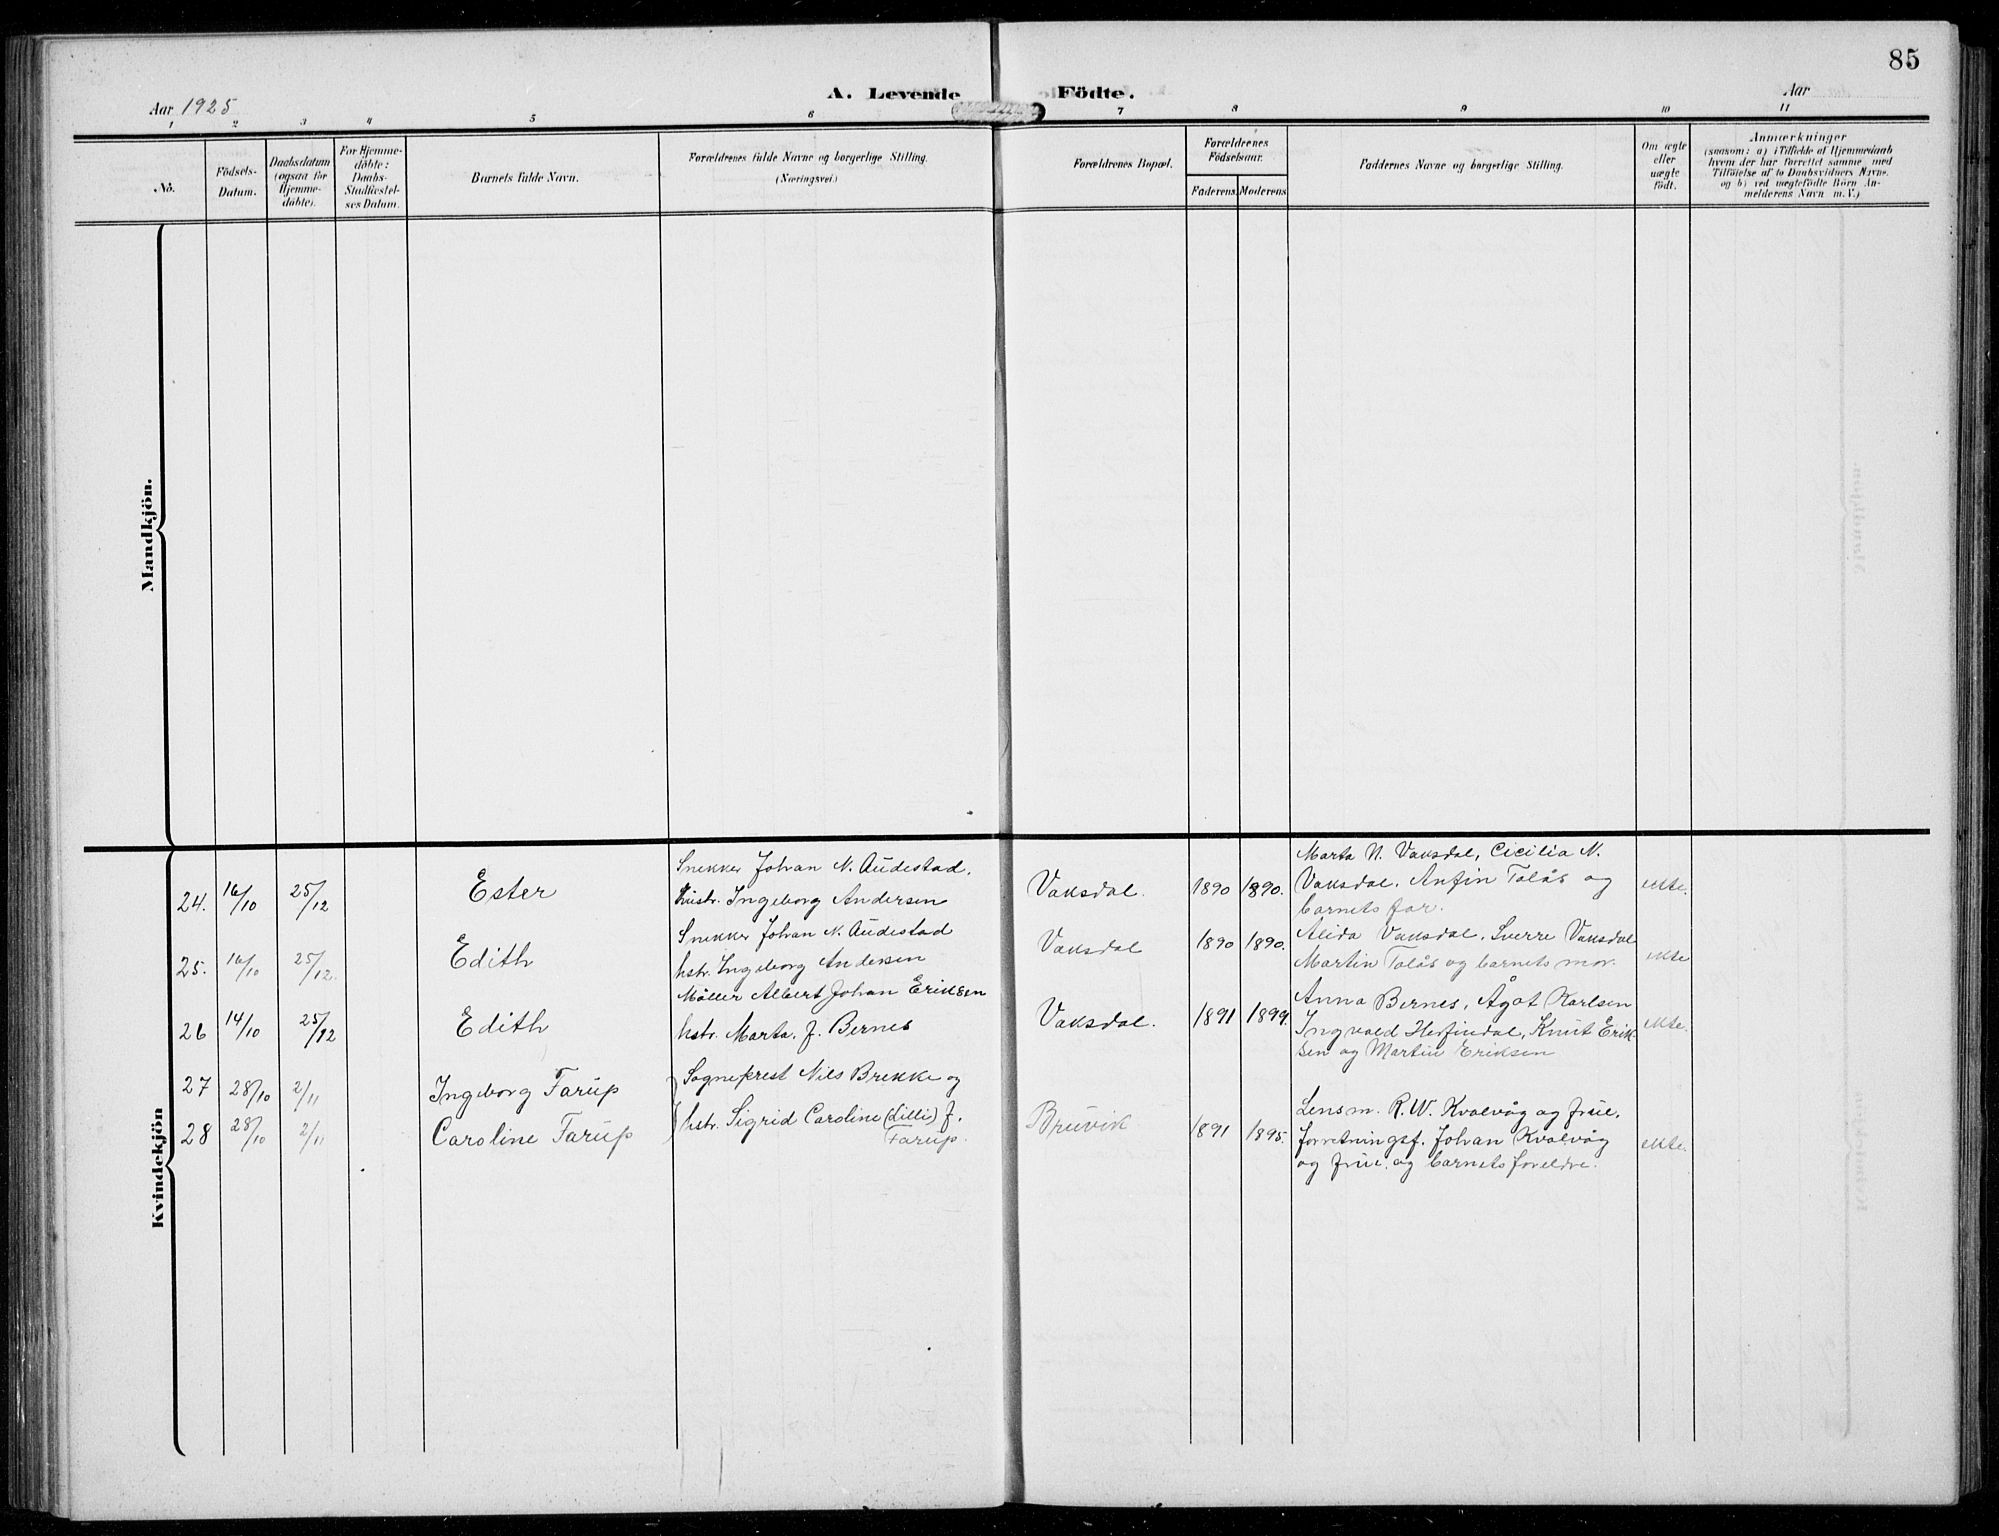 85
A. Levende Födte.
Aar 1925
Aar
1 2 3 4 5 6 7 8 9 10 11
No.
Födsels-
Datum.
Daabsdatum
(ogsaa for
Hjemme-
döbte).
For Hjemme-
döbte:
Daabs-
Stadfæstel-
ses Datum.
Barnets fulde Navn.
Forældrenes fulde Navne og borgerlige Stilling.
(Næringsvei.)
Forældrenes Bopæl.
Forældrenes
Födselsaar.
Faderens. Moderens.
Faddernes Navne og borgerlige Stilling.
Om ægte
eller
uægte
födt.
Anmærkninger
(saasom: a) i Tilfælde af Hjemmedaab
hvem der har forrettet samme, med
Tilföielse af to Daabsvidners Navne,
og b) ved uægtefödte Börn An-
melderens Navn m.V.)
Mandkjön.
Kvindekjön
24. 16/10 25/12 Ester
Snekker Johan N. Audestad.
hustr. Ingeborg Andersen
Vaksdal. 1890 1890.
Marta N. Vaksdal, Cicilia N.
Vaksdal. Anfin Tolås og
barnets far.
ekte.
25. 16/10 25/12. Edith
Snekker Johan N. Audestad
hstr. Ingeborg Andersen
Vaksdal 1890 1890.
Alida Vaksdal, Sverre Vaksdal
Martin Tolås og barnets mor.
ekte
26 14/10 25/12 Edith
Möller Albert Johan Eriksen
hstr. Marta. f. Bernes
Vaksdal. 1891 1899.
Anna Bernes, Ågot Karlsen
Ingvald Herfindal, Knut Erik-
sen og Martin Eriksen
ekte.
27 28/10 2/11 Ingeborg Farup
28 28/10 2/11 Caroline Farup
Sogneprest Nils Brekke og
hstr. Sigrid Caroline (Lilli) f.
Farup.
Bruvik 1891 1895.
Lensm. R.W. Kvalvåg og frue,
forretningsf. Johan Kvalvåg
og frue, og barnets foreldre.
ekte.